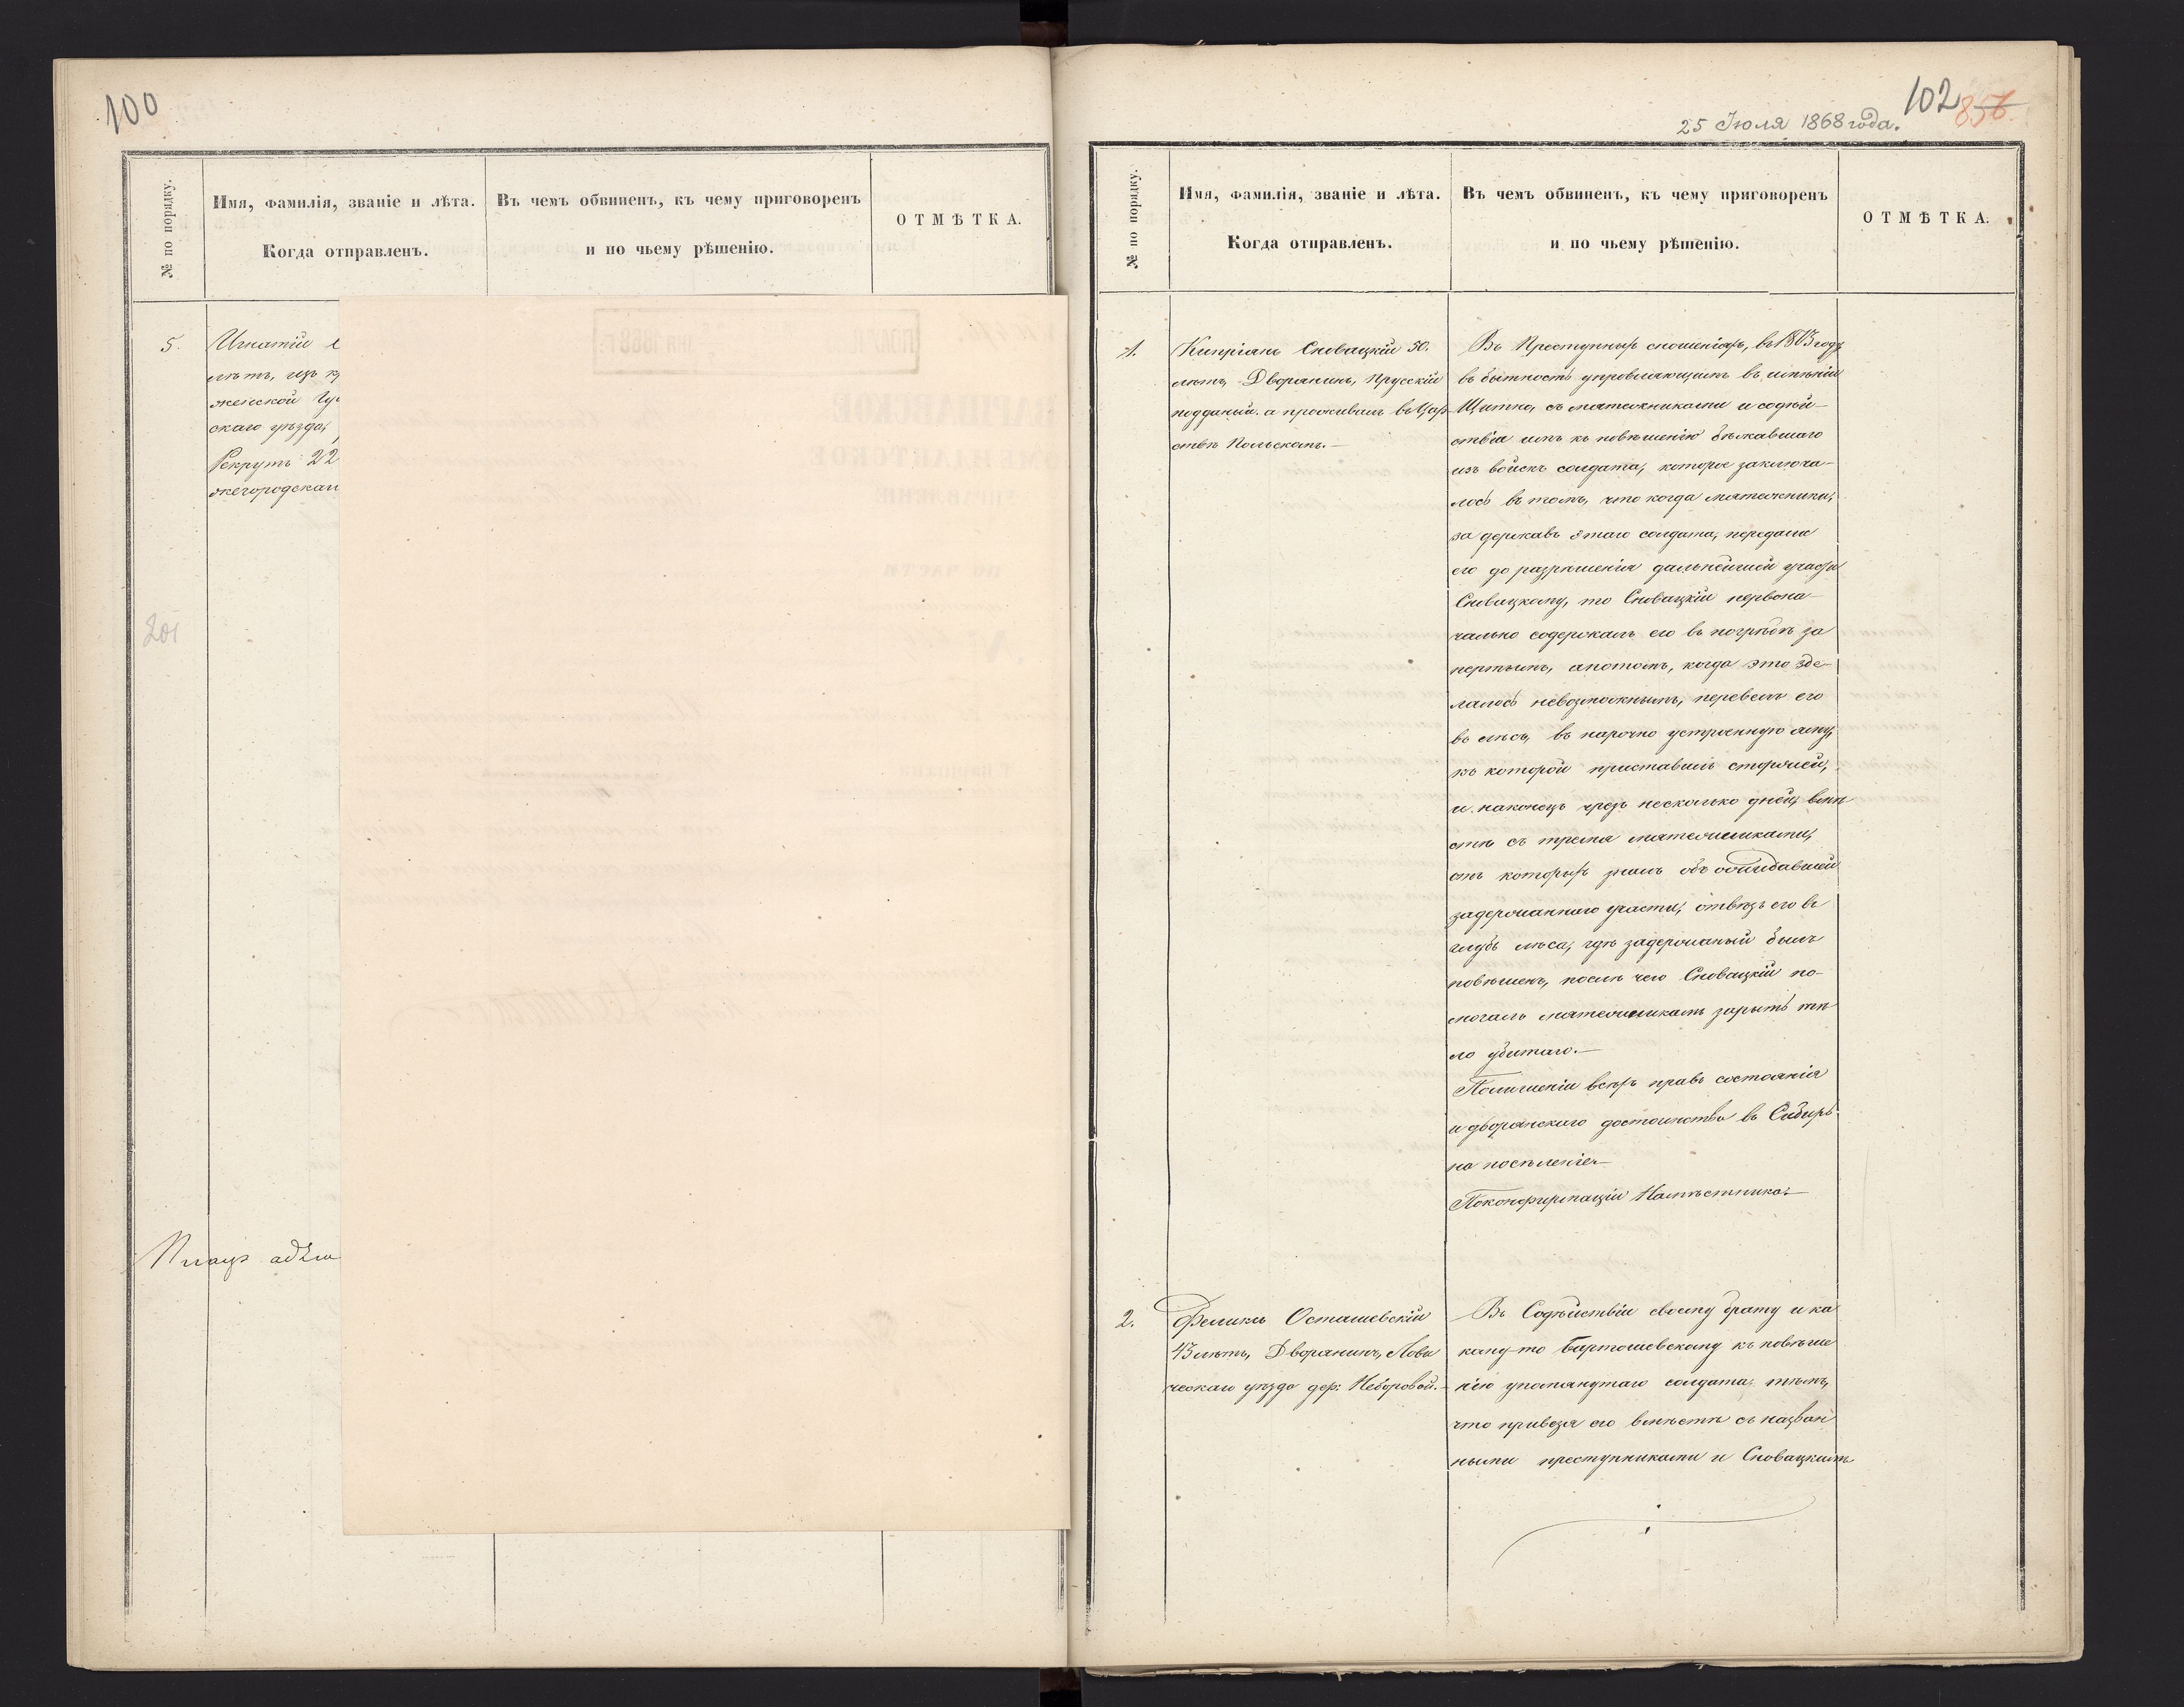 100
№ по порядку.
Имя, фамилія, званіе и лѣта.
Когда отправленъ.
Въ чемъ обвиненъ, къ чему приговоренъ
и по чьему рѣшенію.
ОТМѢТКА.
5.
Игнатій
лѣтъ, изъ
женской
скаго уѣзда,
Рекрутъ 22
201
102
25 Іюля 1868 года.
№ по порядку.
Имя, фамилія, званіе и лѣта.
Когда отправленъ.
Въ чемъ обвиненъ, къ чему приговоренъ
и по чьему рѣшенію.
ОТМѢТКА.
1.
Кипріанъ Сновацкій 50.
лѣтъ, Дворянинъ, Прусскій
подданый. а проживалъ въ Цар
ствѣ Польскомъ.—
Въ Преступныхъ сношеніяхъ, въ 1863 году
въ бытность управляющимъ въ имѣніи
Щитно, съ мятежниками и содѣй-
ствіи имъ къ повѣшенію бѣжавшаго
изъ войскъ солдата, которое заключа-
лось въ томъ, что когда мятежники,
за державъ этаго солдата, передали
его до разрѣшенія дальнейшей участи
Сновацкому, то Сновацкій первона-
чально содержалъ его въ погребѣ за
пертымъ, а потомъ, когда это зде-
лалось невозможнымъ, перевелъ его
въ лѣсъ, въ нарочно устроенную яму,
къ которой приставилъ сторожей,
и наконецъ чрезъ несколько дней, вмѣ
стѣ съ тремя мятежниками,
отъ которыхъ зналъ объ ожидавшей
задержаннаго участи, отвезъ его въ
глубь лѣса, гдѣ задержаный былъ
повѣшенъ, послѣ чего Сновацкій по-
могалъ мятежникамъ зарыть тѣ
ло убитаго.—
По лишеніи всѣхъ правъ состоянія
и дворянскаго достоинства въ Сибирь
на поселеніе.—
По конфирмаціи Намѣстника.—
2.
Феликсъ Осташевскій
43 лѣтъ, Дворянинъ, Лови
ческаго уѣзда дер: Неборовой.—
Въ Содѣйствіи своему брату и ка
кому-то Бартошевскому къ повѣше
нію упомянутаго солдата, тѣмъ,
что привезя его вмѣстѣ съ назван
ными преступниками и Сновацкимъ